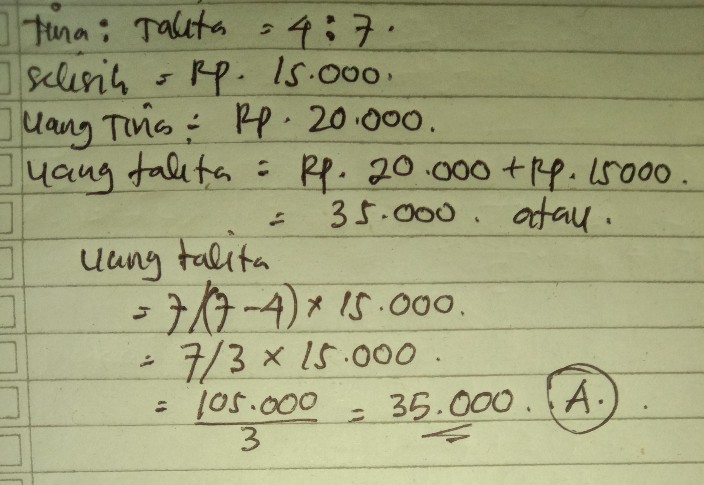 Tina : Talita = 4 : 7.
selisih = Rp. 15.000.
Uang Tina = Rp. 20.000.
Uang talita = Rp. 20.000 + Rp. 15000.
= 35.000. atau.
Uang talita
= 7/(7-4) x 15.000.
= 7/3 x 15.000.
= 105.000/3 = 35.000. A.